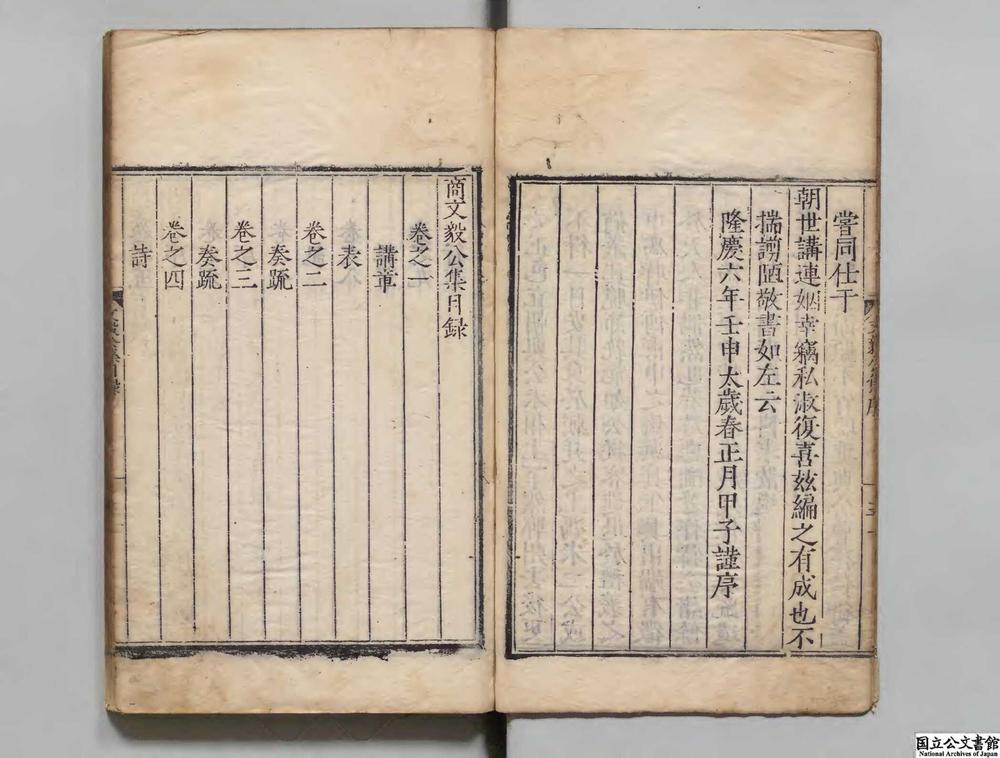 嘗同仕于
朝世講連姻幸竊私淑復喜玆編之有成也不
揣謭陋敬書如左云
隆慶六年壬申太歲春正月甲子謹序
商文毅公集目録
卷之一
講章
表
卷之二
奏疏
卷之三
奏疏
卷之四
詩
国立公文書館
National Archives of Japan